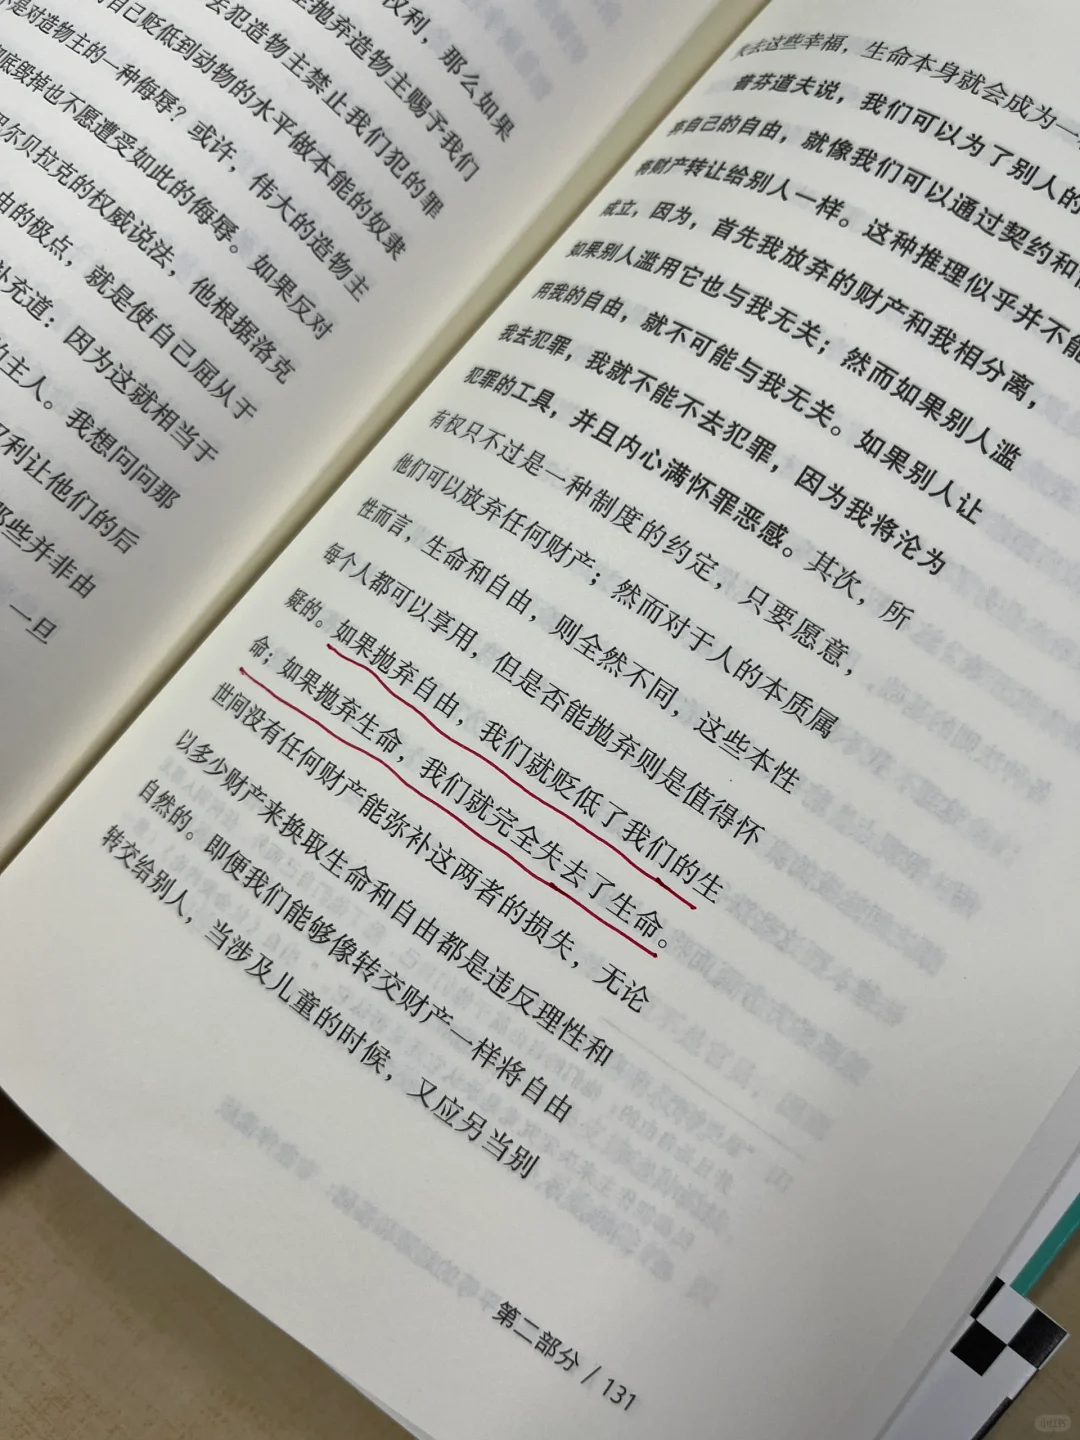 权利，那么如果
抛弃造物主赐予我们
去犯造物主禁止我们犯的罪
自己贬低到动物的水平做本能的奴隶
是对造物主的一种侮辱？或许，伟大的造物主
底毁掉也不愿遭受如此的侮辱。如果反对
尔贝拉克的权威说法，他根据洛克
由的极点，就是使自己屈从于
补充道：因为这就相当于
主人。我想问问那
权利让他们的后
那些并非由
一旦
去这些幸福，生命本身就会成为一
普芬道夫说，我们可以为了别人的
弃自己的自由，就像我们可以通过契约和
将财产转让给别人一样。这种推理似乎并不能
成立，因为，首先我放弃的财产和我相分离，
如果别人滥用它也与我无关；然而如果别人滥
用我的自由，就不可能与我无关。如果别人让
我去犯罪，我就不能不去犯罪，因为我将沦为
犯罪的工具，并且内心满怀罪恶感。其次，所
有权只不过是一种制度的约定，只要愿意，
他们可以放弃任何财产；然而对于人的本质属
性而言，生命和自由，则全然不同，这些本性
每个人都可以享用，但是否能抛弃则是值得怀
疑的。如果抛弃自由，我们就贬低了我们的生
命；如果抛弃生命，我们就完全失去了生命。
世间没有任何财产能弥补这两者的损失，无论
以多少财产来换取生命和自由都是违反理性和
自然的。即便我们能够像转交财产一样将自由
转交给别人，当涉及儿童的时候，又应另当别
第二部分 / 131
小红书